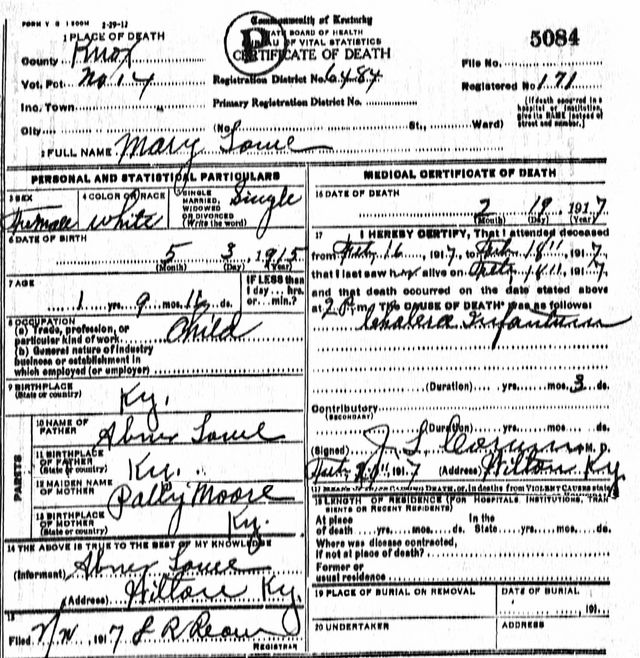 FORM V S 1 500M 1-29-12
Commonwealth of Kentucky
STATE BOARD OF HEALTH
BUREAU OF VITAL STATISTICS
CERTIFICATE OF DEATH
5084
1 PLACE OF DEATH
County Knox
Vot. Pct. No 14
Inc. Town
City
Registration District No. 6484
Primary Registration District No.
(No. St., Ward)
File No.
Registered No 171
(If death occurred in a hospital or institution, give its NAME instead of street and number.)
2 FULL NAME Mary
PERSONAL AND STATISTICAL PARTICULARS
3 SEX
Female
4 COLOR OR RACE
White
5 SINGLE MARRIED, WIDOWED OR DIVORCED (Write the word)
Single
6 DATE OF BIRTH
5 3, 1915
(Month) (Day) (Year)
7 AGE
1 yrs. 9 mos. 16 ds.
IF LESS than 1 day... hrs. or... min.?
8 OCCUPATION
(a) Trade, profession, or particular kind of work Child
(b) General nature of industry business or establishment in which employed (or employer)
9 BIRTHPLACE (State or country)
Ky.
PARENTS
10 NAME OF FATHER
Abner
11 BIRTHPLACE OF FATHER (State or country)
Ky.
12 MAIDEN NAME OF MOTHER
Moore
13 BIRTHPLACE OF MOTHER (State or country)
Ky.
14 THE ABOVE IS TRUE TO THE BEST OF MY KNOWLEDGE
(Informant) Abner
(Address) Wilton Ky.
15
Filed 1917
REGISTRAR
MEDICAL CERTIFICATE OF DEATH
16 DATE OF DEATH
2 19, 1917
(Month) (Day) (Year)
17 I HEREBY CERTIFY, That I attended deceased
from Feb 16, 1917, to Feb 18", 1917,
that I last saw her alive on 1917,
and that death occurred on the date stated above
at 2 P.m. The CAUSE OF DEATH* was as follows:
Cholera Infantum
(Duration) yrs. mos. 3 ds.
Contributory
(SECONDARY)
(Duration) yrs. mos. ds.
(Signed) J L M. D.
1917 (Address) Wilton Ky
18 LENGTH OF RESIDENCE (FOR HOSPITALS, INSTITUTIONS, TRANSIENTS OR RECENT RESIDENTS)
At place of death yrs. mos. ds. In the State yrs. mos. ds.
Where was disease contracted, if not at place of death?
Former or usual residence
19 PLACE OF BURIAL OR REMOVAL
DATE OF BURIAL
, 191
20 UNDERTAKER
ADDRESS